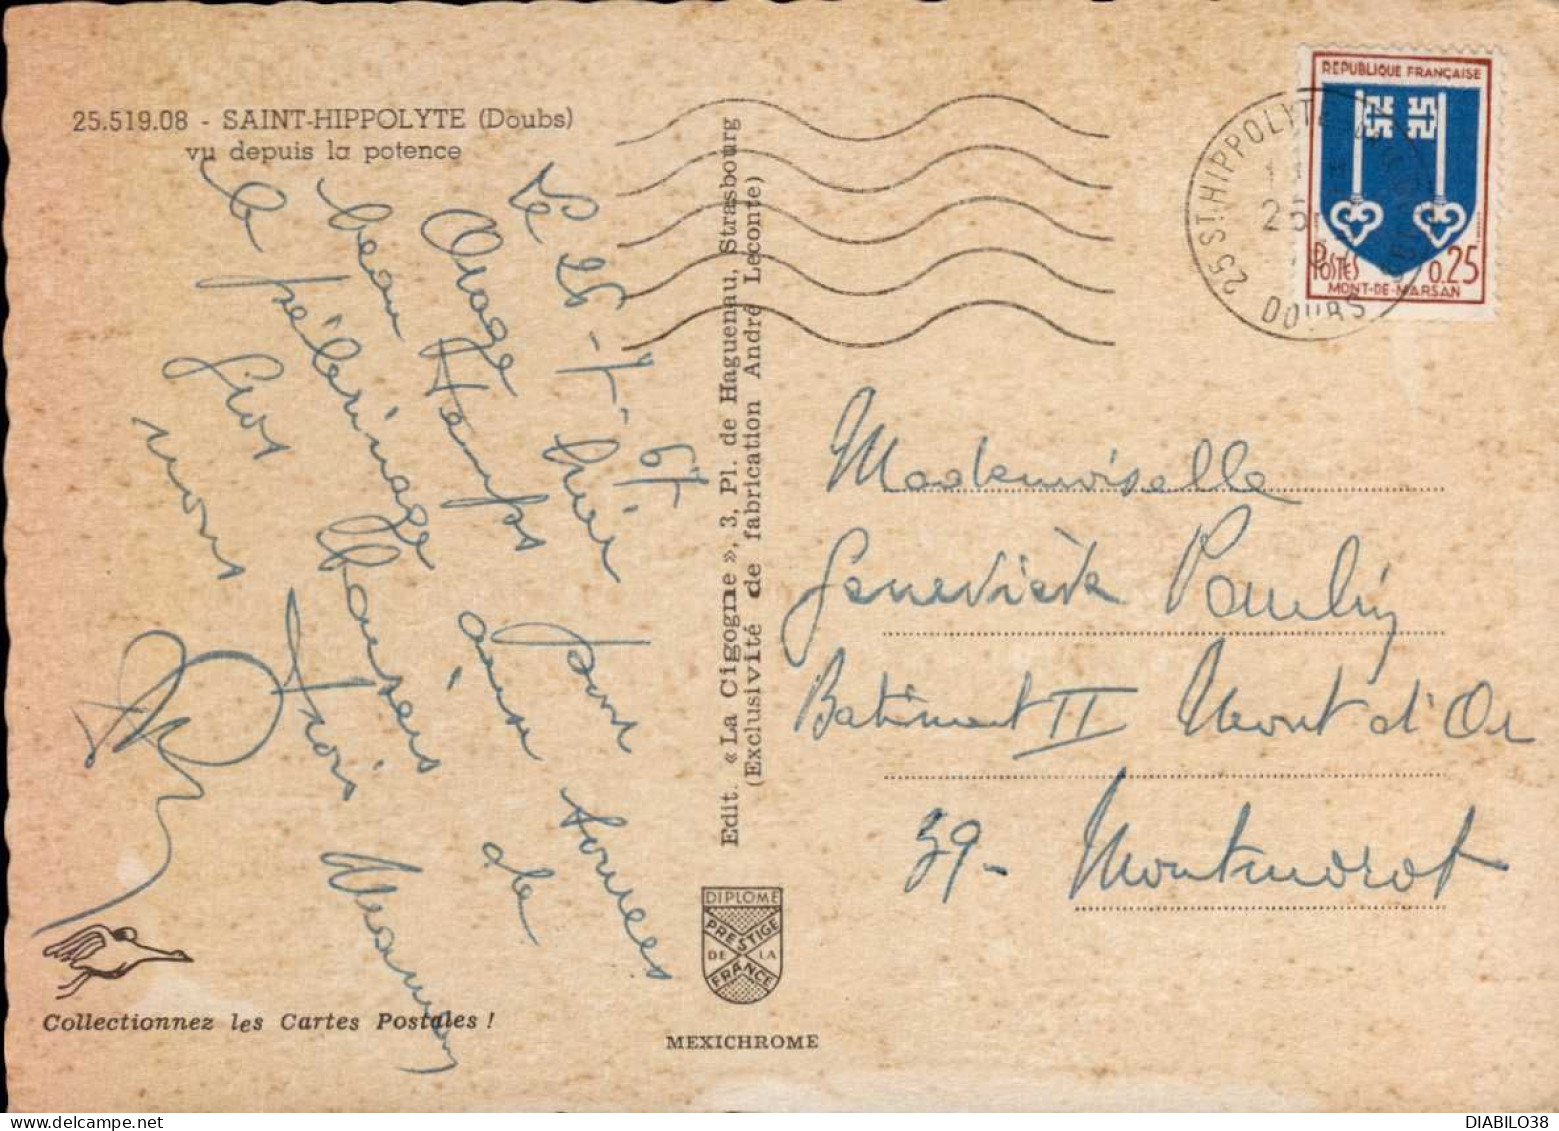 25.519.08 - SAINT-HIPPOLYTE (Doubs)
vu depuis la potence
Le 25-7-67
Orage hier pour toutes
beau temps ainsi de
le pélérinage à
Gros baisers
nous trois Maman
Edit. « La Cigogne », 3, Pl. de Haguenau, Strasbourg
(Exclusivité de fabrication André Leconte)
REPUBLIQUE FRANÇAISE
POSTES 0.25
MONT-DE-MARSAN
25 ST HIPPOLYTE
DOUBS
Mademoiselle
Geneviève Paulin
Batiment II Mont d'Or
39 - Montmorot
DIPLOME
PRESTIGE
DE LA
FRANCE
MEXICHROME
Collectionnez les Cartes Postales !
DIABILO38